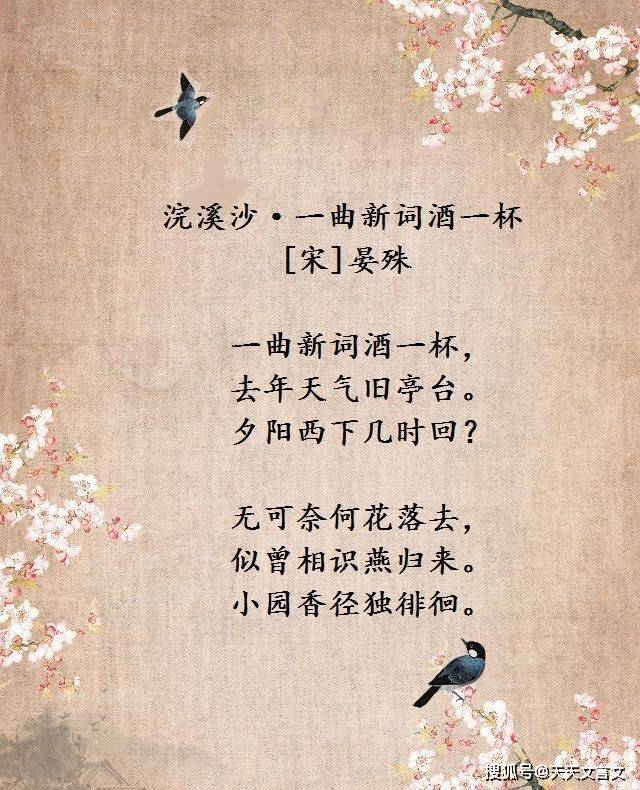 浣溪沙·一曲新词酒一杯
[宋]晏殊
一曲新词酒一杯，
去年天气旧亭台。
夕阳西下几时回？
无可奈何花落去，
似曾相识燕归来。
小园香径独徘徊。
搜狐号@天天文言文